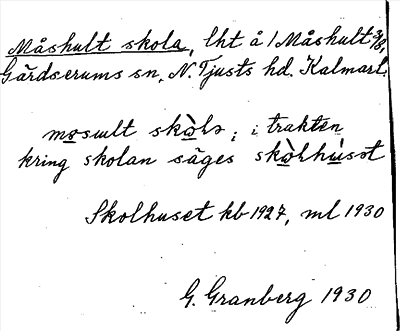 Måshult skola, lht å 1 Måshult 3/8,
Gärdserums sn, N. Tjusts hd. Kalmar l.
skolɑ; i trakten
kring skolan säges
Skolhuset kb 1927, ml 1930
G. Granberg 1930